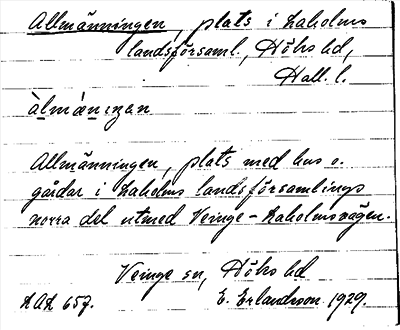 Allmänningen, plats i Laholms
landsförsaml., Höks hd,
Hall. l.
àlmǽniŋan
Allmänningen, plats med hus o.
gårdar i Laholms landsförsamlings
norra del utmed Veinge-Laholmsvägen.
Veinge sn, Höks hd
LAL 657. E. Erlandsson 1929.